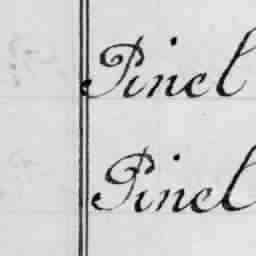 Pinel
Pinel